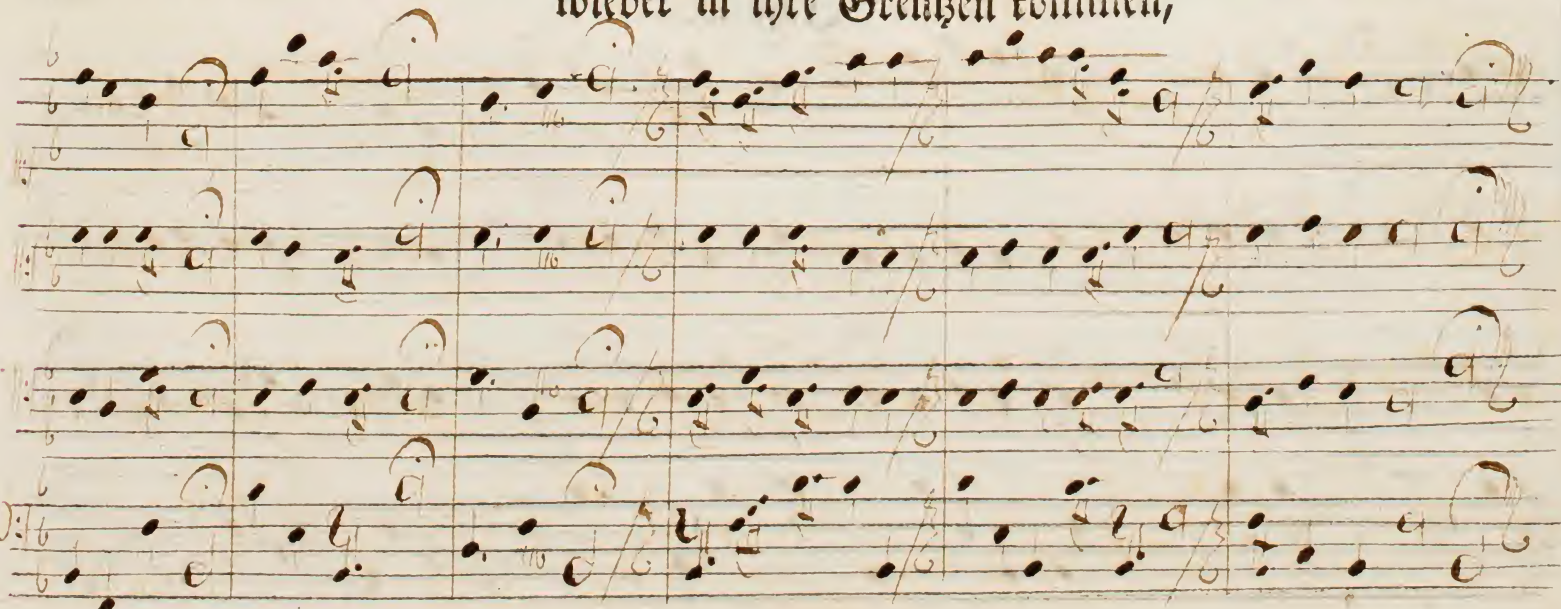 wieder in ihre Grentzen kommen,